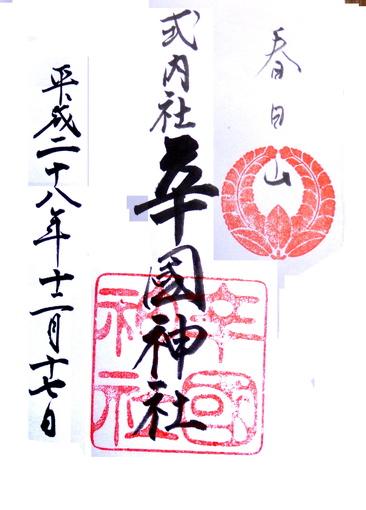 春日山
式内社
辛國神社
辛國神社
平成二十八年十二月十七日